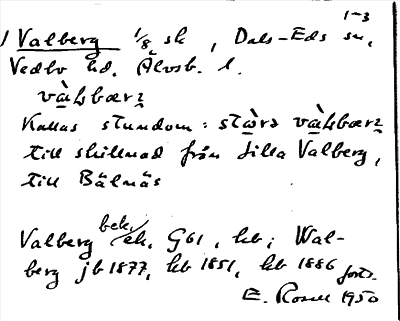 1-3
Valberg 1/8 sk, Dals-Eds sn,
Vedbo hd. Älvsb. l.
Kallas stundom:
till skillnad från Lilla Valberg,
till Bälnäs
bek.
Valberg ek. G61, kb; Wal-
berg jb 1877, kb 1851, kb 1886 forts.
E. Rosell 1950